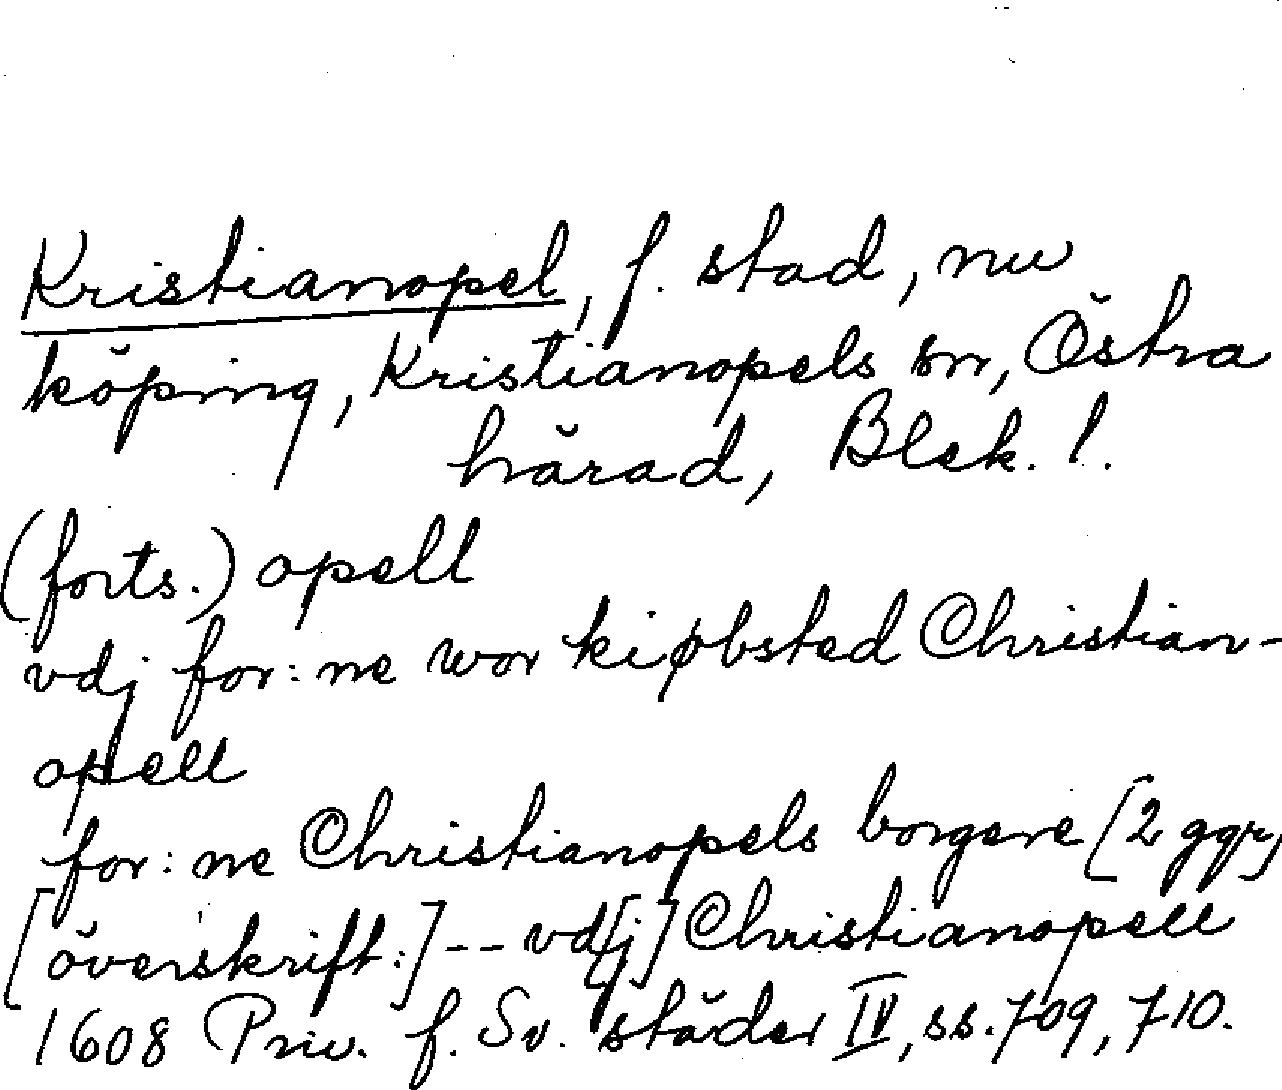 Kristianopel, f. stad, nu
köping, Kristianopels sn, Östra
härad, Blek. l.
(forts.) opell
vdj for: ne wor kiøbsted Christian-
opell
for: ne Christianopels borgere [2 ggr]
[överskrift:] -- vd[j] Christianopell
1608 Priv. f. Sv. städer IV, ss. 709, 710.